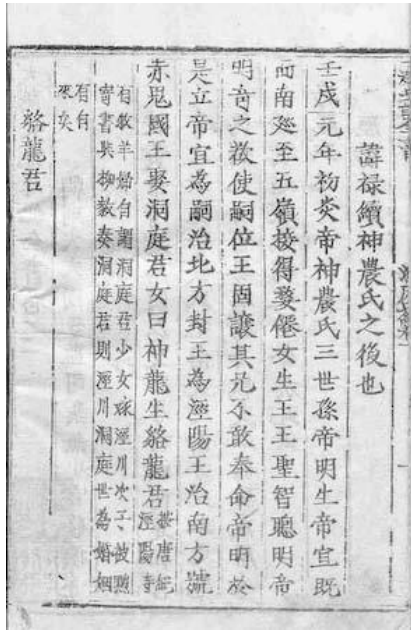 諱禄續神農氏之後也
壬戌元年初炎帝神農氏三世孫帝明生帝宜既
而南廵至五嶺接得婺僊女生王王聖智聰明帝
明奇之欲使嗣位王固讓其兄不敢奉命帝明於
是立帝宜為嗣治北方封王為涇陽王治南方號
赤鬼國王娶洞庭君女曰神龍生貉龍君按唐紀
涇陽時
有牧羊婦自謂洞庭君少女嫁涇川次子被黜
寄書與柳毅奏洞庭君則涇川洞庭世為婚姻
有自
來矣
貉龍君